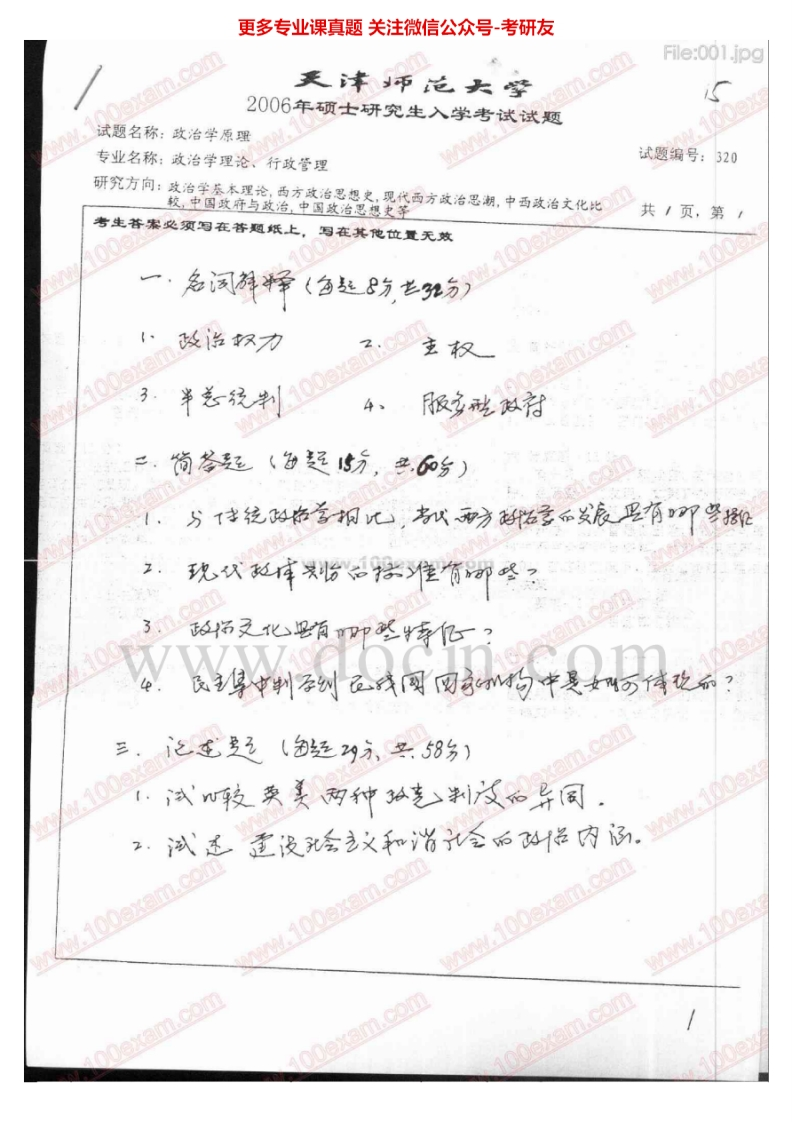 更多专业课真题 关注微信公众号-考研友
File:001.jpg
天津师范大学
15
2006年硕士研究生入学考试试题
试题名称：政治学原理
专业名称：政治学理论、行政管理
试题编号：320
研究方向：政治学基本理论,西方政治思想史,现代西方政治思潮,中西政治文化比
较,中国政府与政治,中国政治思想史等
共 1 页，第 1
考生答案必须写在答题纸上，写在其他位置无效
一. 名词解释（每题8分,共32分）
1. 政治权力 2. 主权
3. 半总统制 4、服务型政府
二. 简答题（每题15分，共60分）
1. 与传统政治学相比，当代西方政治学的发展具有哪些特征
2. 现代政体划分的标准有哪些？
3. 政治文化具有哪些特征？
4. 民主集中制原则在我国国家机构中是如何体现的？
三. 论述题（每题29分，共58分）
1. 试比较英美两种政党制度的异同。
2. 试述建设社会主义和谐社会的政治内涵。
1
www.docin.com
www.100exam.com